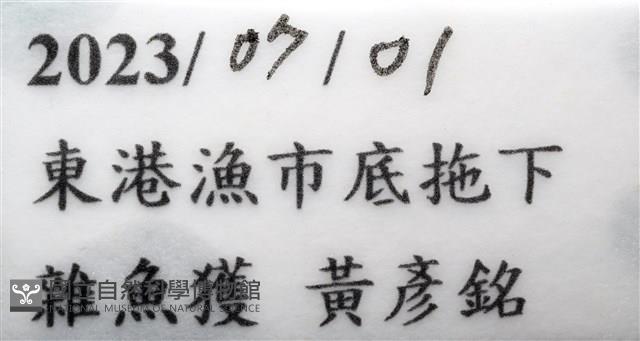 2023/07/01
東港漁市底拖下
雜魚獲 黃彥銘
國立自然科學博物館
NATIONAL MUSEUM OF NATURAL SCIENCE